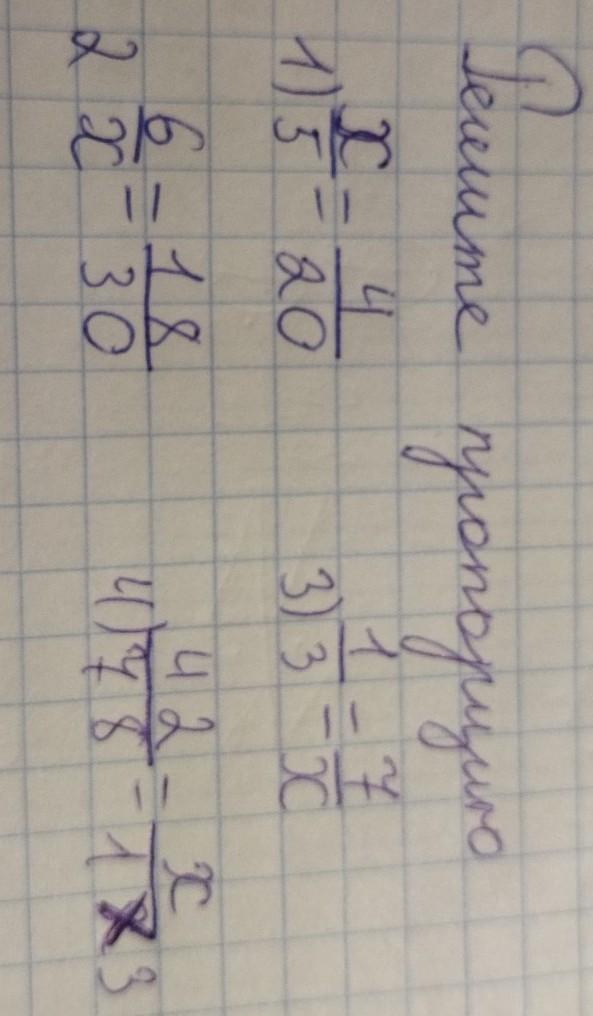 Решите пропорцию
1) x/5 = 4/20
3) 1/3 = 7/x
2 6/x = 18/30
4) 42/78 = x/13